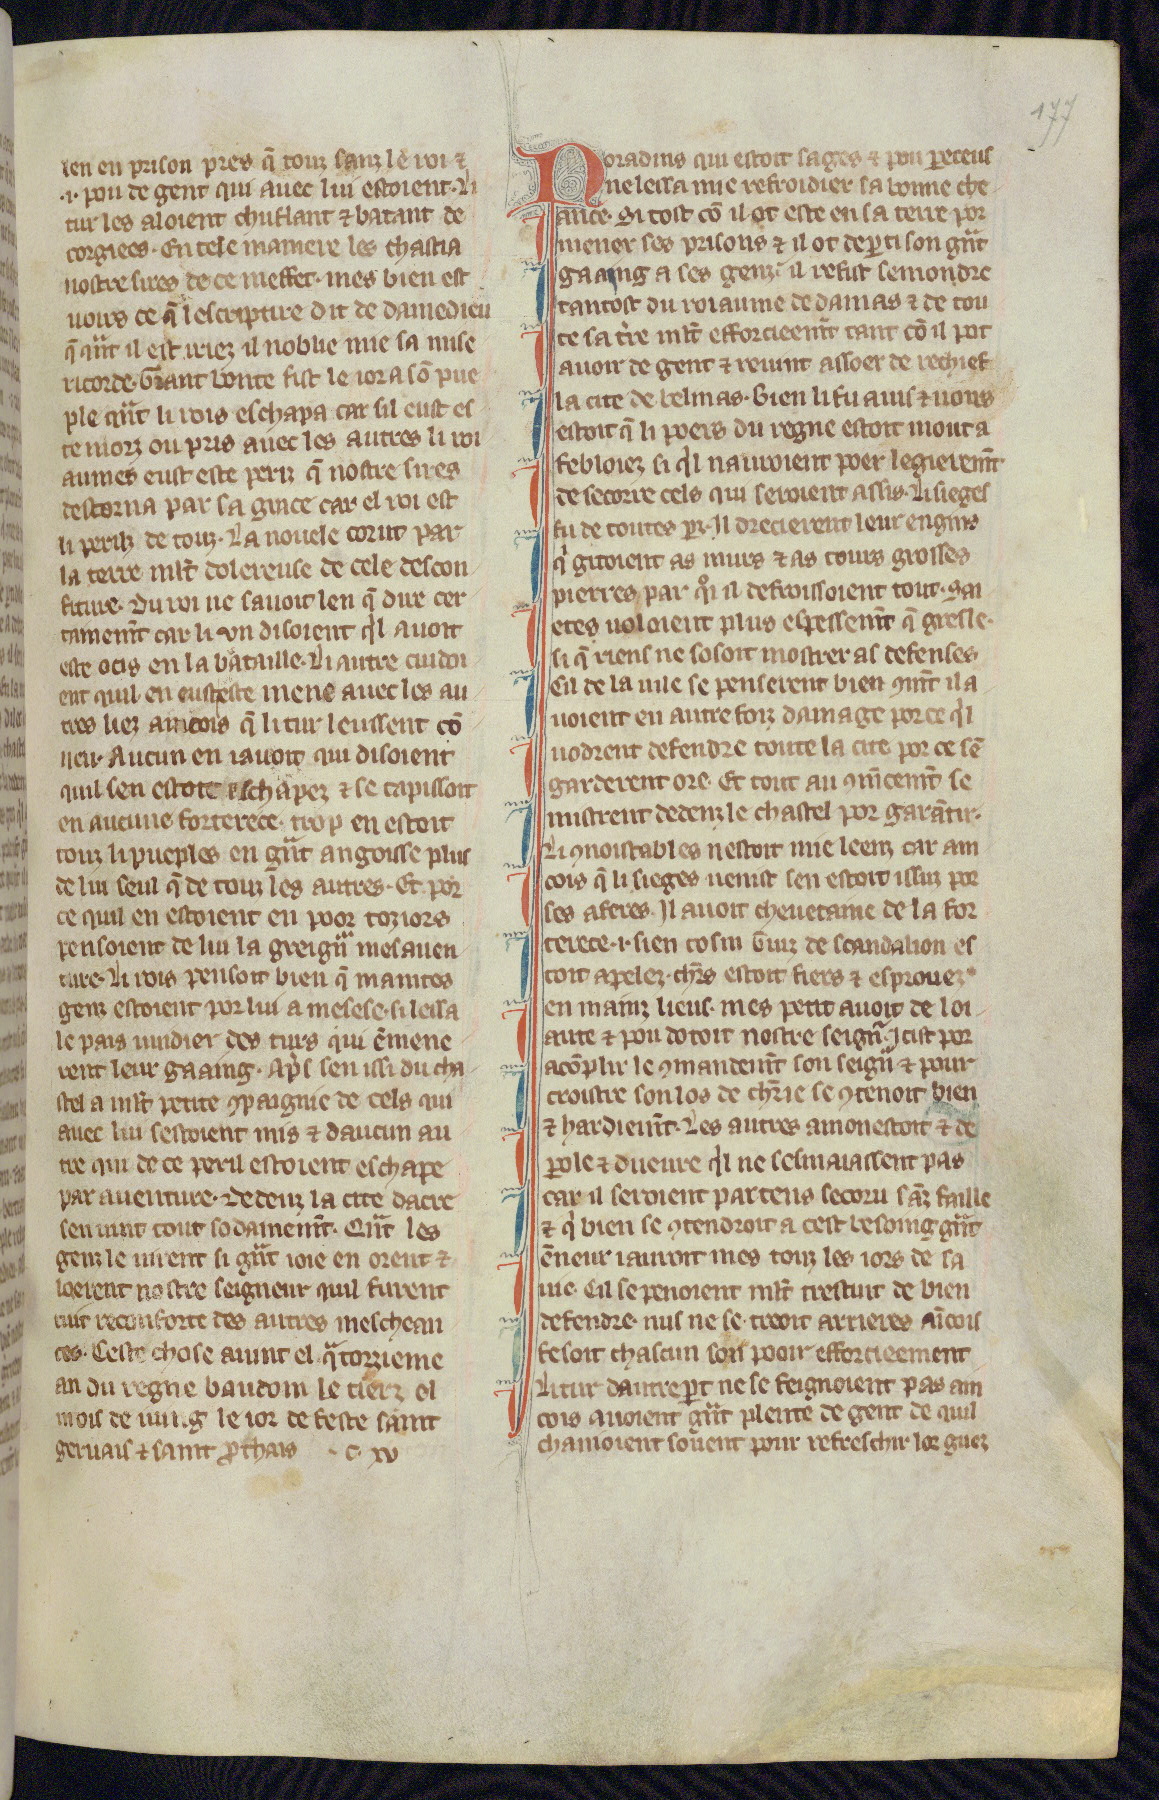 177
len en prison pres q̃ touz sanz le roi ⁊
.i. pou de gent qui auec lui estoient. Li
tur les aloient chuflant ⁊ batant de
corgiees. En tele maniere les chastia
nostre sires de ce meffet. mes bien est
uoirs ce q̃ lescripture dit de damedieu
q̃ qñt il est iriez il noblie mie sa mise
ricorde. Grant bonte fist le ior a sõ pue
ple qñt li rois eschapa car sil eust es
te morz ou pris auec les autres li roi
aumes eust este periz q̃ nostre sires
destorna par sa grace car el roi est
li periz de touz. La nouele corut par
la terre mlt̃ dolereuse de cele descon
fiture. Du roi ne sauoit len q̃ dire cer
tainem̃t car li vn disoient q̃l auoit
este ocis en la bataille. Li autre cuidoi
ent quil en eust este mene auec les au
tres liez aincois q̃ li tur leussent cõ
neu. Aucun en iauoit qui disoient
quil sen estoit eschapez ⁊ se tapissoit
en aucune forterece. trop en estoit
touz li pueples en gñt angoisse plus
de lui seul q̃ de touz les autres. Et por
ce quil en estoient en poor toziors
pensoient de lui la greigñ mesauen
ture. Li rois pensoit bien q̃ maintes
genz estoient por lui a mesese. si lessa
le pais uuidier des turs qui ẽmene
rent leur gaaing. Ap̃s sen issi du cha
stel a mlt̃ petite ꝯpaignie de cels qui
auec lui sestoient mis ⁊ daucun au
tre qui de ce peril estoient eschape
par auenture. Dedenz la cite dacre
sen uint tout sodainem̃t. Qñt les
genz le uirent si gñt ioie en orent ⁊
loerent nostre seigneur quil furent
tuit reconforte des autres meschean
ces. Ceste chose auint el q̃torzieme
an du regne baudoin le tierz el
mois de iuing le ior de feste saint
geruais ⁊ saint ꝓthais .c. xv
Noradins qui estoit sages ⁊ pou peceus
ne lessa mie refroidier sa bonne che
ance. Si tost cõ il ot este en sa terre por
mener ses prisons ⁊ il ot deꝑti son gñt
gaaing a ses genz. il refist semondre
tantost du roiaume de damas ⁊ de tou
te sa t̃re mlt̃ efforcieem̃t tant cõ il pot
auoir de gent ⁊ reuint assoer de rechief
la cite de belinas. Bien li fu auis ⁊ uoirs
estoit q̃ li poers du regne estoit mout a
febloiez si q̃l nauroient poer legierem̃t
de secorre cels qui seroient assis. Li sieges
fu de toutes ꝑz. Il drecierent leur engins
q̃ gitoient as murs ⁊ as tours grosses
pierres par q̃i il defroissoient tout. Sai
etes uoloient plus espessem̃t q̃ gresle.
si q̃ riens ne sosoit mostrer as defenses
Cil de la uile se penserent bien ꝯm̃t il a
uoient en autre foiz damage por ce q̃l
uodrent defendre toute la cite por ce sẽ
garderent ore. Et tout au ꝯm̃cem̃t se
mistrent dedenz le chastel por garãtir.
Li ꝯnoistables nestoit mie leenz car ain
cois q̃ li sieges uenist sen estoit issuz por
ses aferes. Il auoit cheuetaine de la for
terece .i. sien cosin Guiz de scandalion es
toit apelez. chr̃s estoit fiers ⁊ esprouez
en mainz lieus. mes petit auoit de loi
aute ⁊ pou dotoit nostre seigñ. Icist por
acõplir le ꝯmandem̃t son seigñ ⁊ pour
croistre son los de chr̃ie se ꝯtenoit bien
⁊ hardiem̃t. Les autres amonestoit ⁊ de
ꝑole ⁊ dueure q̃l ne sesmaiassent pas
car il seroient par tens secoru sãz faille
⁊ q̃ bien se ꝯtendroit a cest besoing gñt
ẽneur i auroit mes touz les iors de sa
uie. Cil se penoient mlt̃ trestuit de bien
defendre. nus ne se treoit arrieres aĩcois
fesoit chascun son pooir efforcieement
Li tur dautre ꝑt ne se feignoient pas ain
cois auoient gñt plente de gent de quil
chanioient souent pour refreschir lor guez